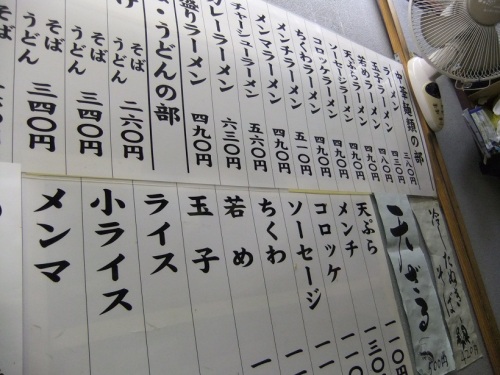 中華麺類の部
ラーメン 三八〇円
玉子ラーメン 四三〇円
若めラーメン 四八〇円
天ぷらラーメン 四九〇円
ソーセージラーメン 四九〇円
コロッケラーメン 四九〇円
ちくわラーメン 四九〇円
メンチラーメン 五一〇円
メンマラーメン 四九〇円
チャーシューラーメン 五六〇円
カレーラーメン 六三〇円
盛りラーメン 四九〇円
・うどんの部
そば うどん 二六〇円
そば うどん 三四〇円
そば うどん 三四〇円
うどん
冷したぬき
天ざる
天ぷら 一一〇
メンチ 一三〇
コロッケ 一一
ソーセージ 一
ちくわ 一
若め
玉子
ライス
小ライス
メンマ